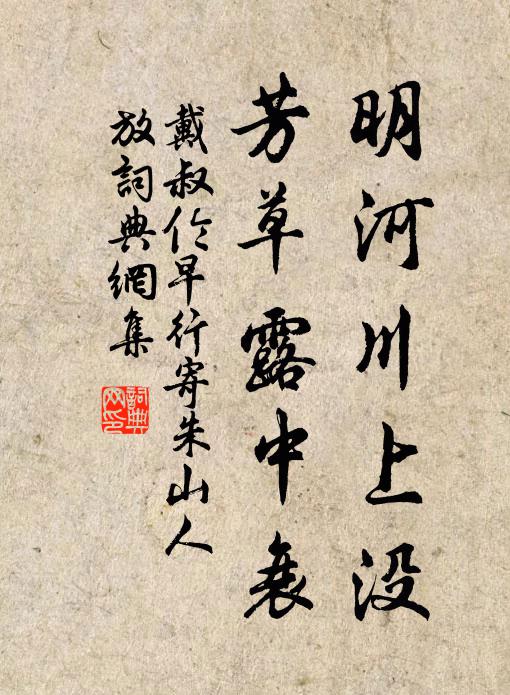 明河川上没
芳草露中衰
戴叔伦早行寄朱山人
放詞典網集
詞典网印